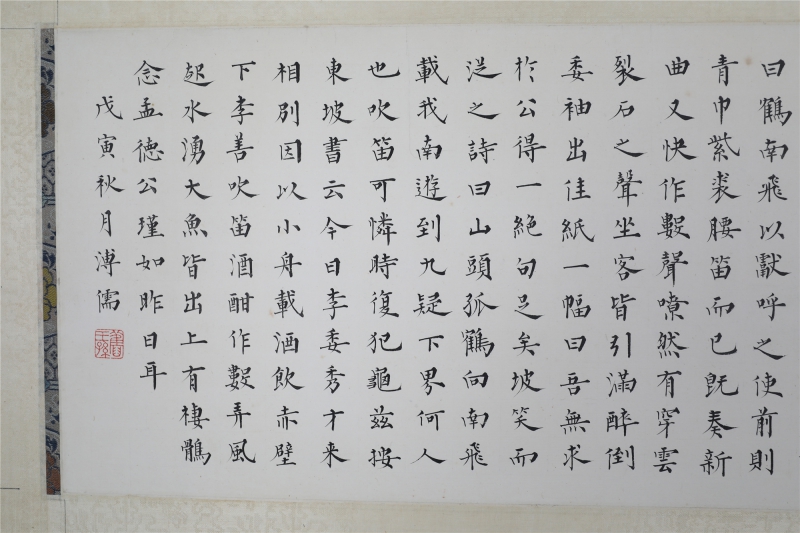 曰鶴南飛以獻呼之使前則
青巾紫裘腰笛而已既奏新
曲又快作數聲嘹然有穿雲
裂石之聲坐客皆引滿醉倒
委袖出佳紙一幅曰吾無求
於公得一絕句足矣坡笑而
從之詩曰山頭孤鶴向南飛
載我南遊到九疑下界何人
也吹笛可憐時復犯龜茲按
東坡書云今日李委秀才來
相別因以小舟載酒飲赤壁
下李善吹笛酒酣作數弄風
起水湧大魚皆出上有棲鶻
念孟德公瑾如昨日耳
戊寅秋月溥儒